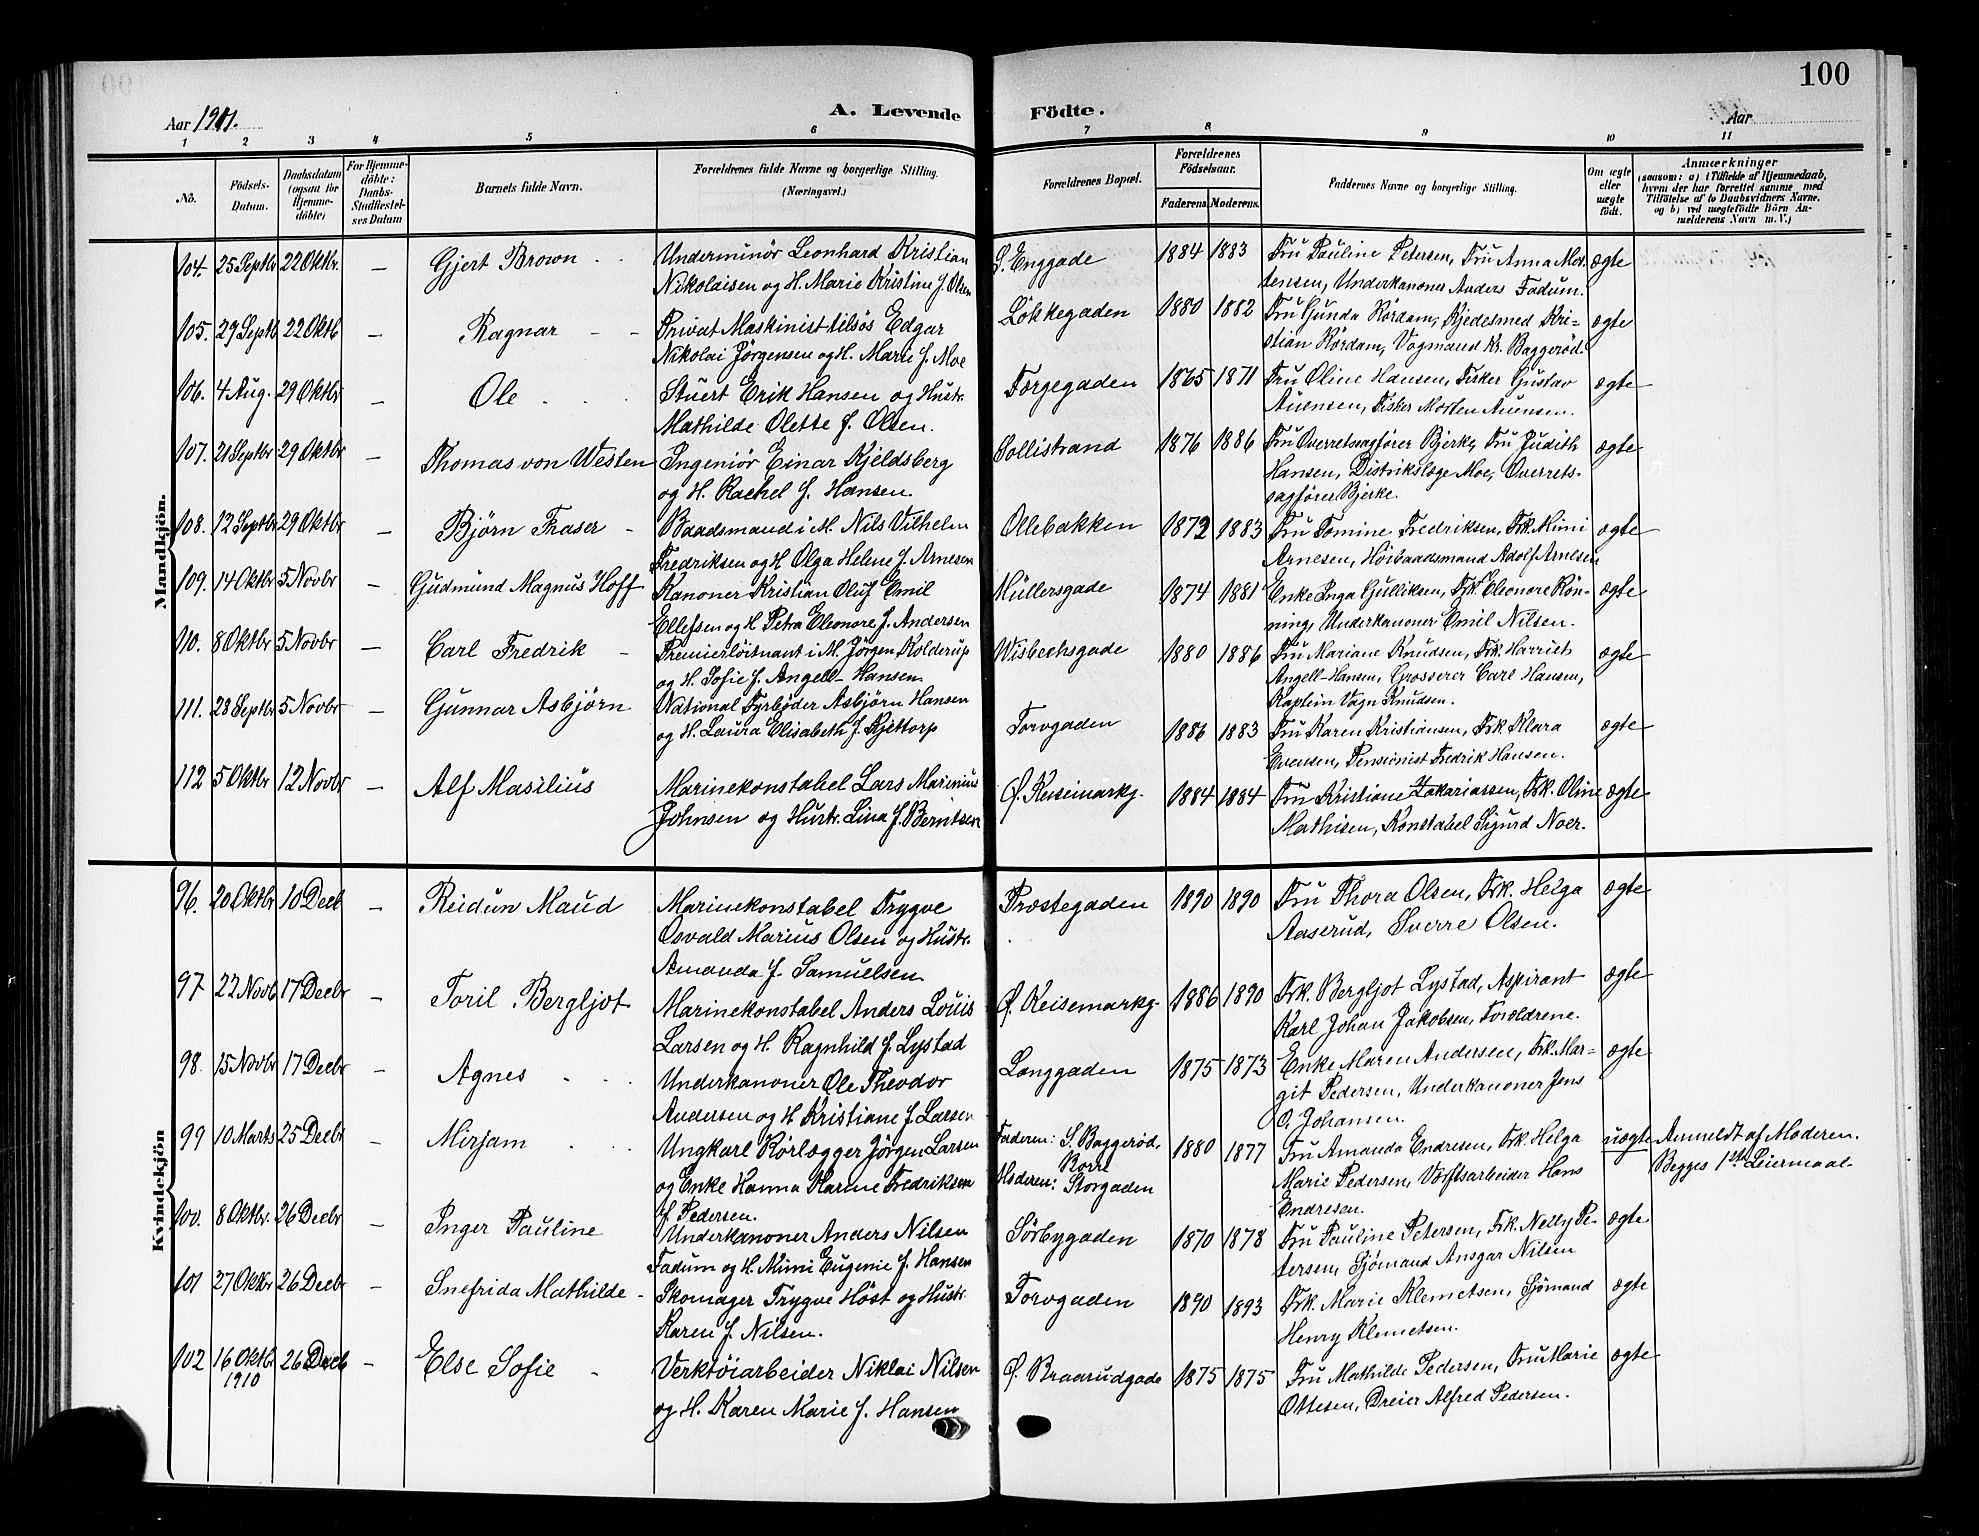 100
Aar 1911.
A. Levende Födte.
Aar
1 2 3 4 5 6 7 8 9 10 11
No.
Födsels-Datum.
Daabsdatum (ogsaa för Hjemme-döbte)
For Hjemme-döbte: Daabs-Stadfæstel-ses Datum
Barnets fulde Navn.
Forældrenes fulde Navne og borgerlige Stilling. (Næringsvei.)
Forældrenes Bopæl.
Forældrenes Födselsaar.
Faderens. Moderens.
Faddernes Navne og borgerlige Stilling.
Om ægte eller uægte födt.
Anmærkninger
(saasom: a) i Tilfælde af Hjemmedaab,
hvem der har forrettet samme, med
Tilföielse af to Daabsvidners Navne,
og b) ved uægtefödte Börn An-
melderens Navn m. V.)
Mandkjön.
104. 25 Septbr 22 Oktbr. — Gjert Brown
Underminör Leonhard Kristian
Nikolaisen og H. Marie Kristine f. Olsen
L. Enggade 1884 1883
Fru Pauline Petersen, Fru Anna Mor-
tensen, Underkanoner Anders Fadum.
ægte
105. 29 Septb 22 Oktb — Ragnar
Privat Maskinist tilsös Edgar
Nikolai Jörgensen og H. Marie f. Moe
Lökkegaden 1880 1882
Fru Gunda Rördam, Kjedesmed Kri-
stian Rördam, Vognmand Kr. Baggeröd
ægte
106. 4 Aug. 29 Oktbr — Ole
Stuert Erik Hansen og Hustr.
Mathilde Olette f. Olsen.
Færgegaden 1865 1871
Fru Oline Hansen, Fisker Gustav
Auensen, Fisker Morten Auensen.
ægte
107. 21 Septbr 29 Oktbr — Thomas von Westen
Ingeniör Einar Kjeldsberg
og H. Rachel f. Hansen.
Sollistrand 1876 1886
Fru Overretssagförer Bjerke, Fru Judith
Hansen, Distrikslæge Moe, Overrets-
sagförer Bjerke.
ægte
108. 12 Septbr 29 Oktbr — Björn Fraser
Baadsmand i M. Nils Vilhelm
Fredriksen og H Olga Helene f. Arnesen
Ollebakken 1872 1883
Fru Tomine Fredriksen, Frk. Mimi
Arnesen, Höibaadsmand Adolf Arnesen
ægte
109. 14 Oktbr 5 Novbr — Gudmund Magnus Hoff
Kanoner Kristian Oluf Emil
Ellefsen og H Petra Eleonore f. Andersen
Müllersgade 1874 1881
Enke Inga Gulliksen, Frk. Eleonore Rön-
ning, Underkanoner Emil Nilsen.
ægte
110. 8 Oktbr 5 Novbr — Carl Fredrik
Premierlöitnant i M. Jörgen Kolderup
og H. Sofie f. Angell-Hansen
Wisbechsgade 1880 1886
Fru Mariane Knudsen, Frk. Harriet
Angell-Hansen, Grosserer Carl Hansen,
Kaptein Vagn Knudsen.
ægte
111. 28 Septbr 5 Novbr — Gunnar Asbjörn
National Fyrböder Asbjörn Hansen
og H. Laura Elisabeth f. Kjettorp
Torvgaden 1886 1883
Fru Karen Kristiansen, Frk Klara
Evensen, Pensionist Fredrik Hansen.
ægte
112 5 Oktbr 12 Novbr — Alf Masilius
Marinekonstabel Lars Marinius
Johnsen og Hustr. Lina f. Berntsen
Ø. Keisemarkg. 1884 1884
Fru Kristiane Zakariassen, Frk. Oline
Mathisen, Konstabel Sigurd Noer.
ægte
Kvindekjön
96. 20 Oktbr 10 Decb — Reidun Maud
Marinekonstabel Trygve
Osvald Marius Olsen og Hustr.
Amanda f. Samuelsen
Præstegaden 1890 1890
Fru Thora Olsen, Frk. Helga
Aaserud, Sverre Olsen.
ægte
97 22 Novb 17 Decbr — Toril Bergljot
Marinekonstabel Anders Louis
Larsen og H. Ragnhild f. Lystad
Ø. Keisemarkg. 1886 1890
Frk. Bergljot Lystad, Aspirant
Karl Johan Jakobsen, Forældrene.
ægte
98. 15 Novbr 17 Decbr — Agnes
Underkanoner Ole Theodor
Andersen og H Kristiane f. Larsen
Langgaden 1875 1873
Enke Maren Andersen, Frk. Mar-
git Pedersen, Underkanoner Jens
O. Johansen.
ægte
99 10 Marts 25 Decbr — Mirjam
Ungkarl Rörlægger Jörgen Larsen
og Enke Hanna Karine Fredriksen
f. Pedersen.
Faderen: S. Baggeröd, Borre
Moderen: Storgaden
1880 1877
Fru Amanda Endresen, Frk. Helga
Marie Pedersen, Værftsarbeider Hans
Endresen.
uægte
Anmeldt af Moderen.
Begges 1ste Leiermaal.
100. 8 Oktbr. 26 Decbr — Inger Pauline
Underkanoner Anders Nilsen
Fadum og H. Mimi Eugenie f. Hansen
Sörbygaden 1870 1878
Fru Pauline Petersen, Frk. Nelly Pe-
tersen, Sjömand Ansgar Nilsen
ægte
101 27 Oktbr 26 Decbr — Snefrida Mathilde
Skomager Trygve Höst og Hustr.
Karen f. Nilsen.
Torvgaden 1890 1893
Frk. Marie Klemetsen, Sjömand
Henry Klemetsen.
ægte
102 16 Oktbr 1910 26 Decb — Else Sofie
Verktöiarbeider Niklai Nilsen
og H. Karen Marie f. Hansen
Ø. Braarudgade 1875 1875
Fru Mathilde Pedersen, Fru Marie
Ottesen, Dreier Alfred Pedersen.
ægte